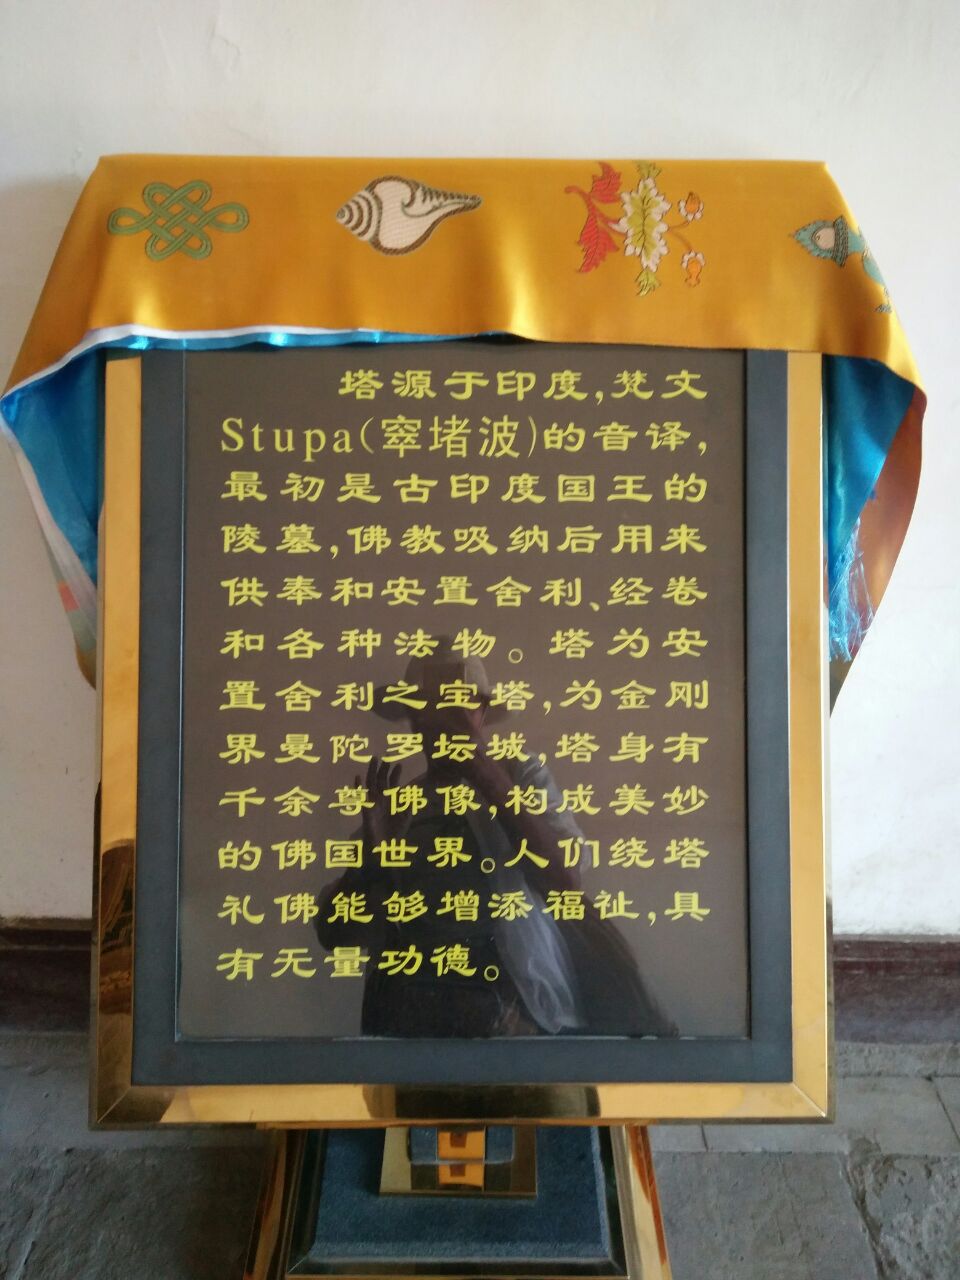 塔源于印度,梵文
Stupa(窣堵波)的音译,
最初是古印度国王的
陵墓,佛教吸纳后用来
供奉和安置舍利、经卷
和各种法物。塔为安
置舍利之宝塔,为金刚
界曼陀罗坛城,塔身有
千余尊佛像,构成美妙
的佛国世界。人们绕塔
礼佛能够增添福祉,具
有无量功德。